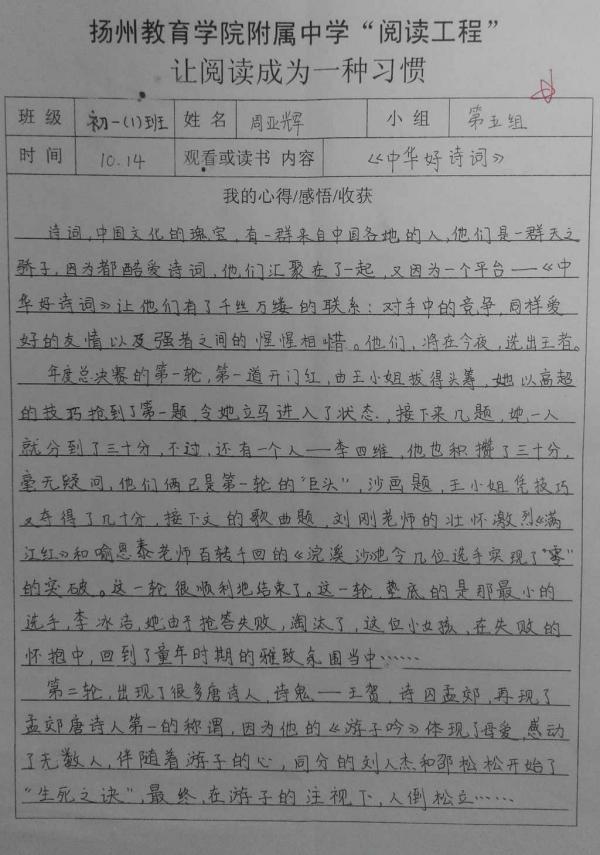 扬州教育学院附属中学“阅读工程”
让阅读成为一种习惯
班 级 初一(1)班 姓 名 周亚辉 小 组 第五组
时 间 10.14 观看或读书 内容 《中华好诗词》
我的心得/感悟/收获
诗词,中国文化的瑰宝,有一群来自中国各地的人,他们是一群天之
骄子,因为都酷爱诗词,他们汇聚在了一起,又因为一个平台——《中
华好诗词》让他们有了千丝万缕的联系:对手中的竞争,同样爱
好的友情以及强者之间的惺惺相惜。他们,将在今夜,选出王者。
年度总决赛的第一轮,第一道开门红,由王小姐拔得头筹,她以高超
的技巧抢到了第一题,令她立马进入了状态,接下来几题,她一人
就分到了三十分,不过,还有一个人——李四维,他也积攒了三十分,
毫无疑问,他们俩已是第一轮的“巨头”,沙画题,王小姐凭技巧
又夺得了几十分,接下文的歌曲题,刘刚老师的壮怀激烈《满
江红》和喻恩泰老师百转千回的《浣溪沙》令几位选手实现了“零”
的突破。这一轮很顺利地结束了。这一轮,垫底的是那最小的
选手,李冰洁,她由于抢答失败,淘汰了,这位小女孩,在失败的
怀抱中,回到了童年时期的雅致氛围当中……
第二轮,出现了很多唐诗人,诗鬼——王贺,诗囚孟郊,再现了
孟郊唐诗人第一的称谓,因为他的《游子吟》体现了母爱,感动
了无数人,伴随着游子的心,同分的刘人杰和邵松松开始了
“生死之诀”,最终,在游子的注视下,人倒松立……